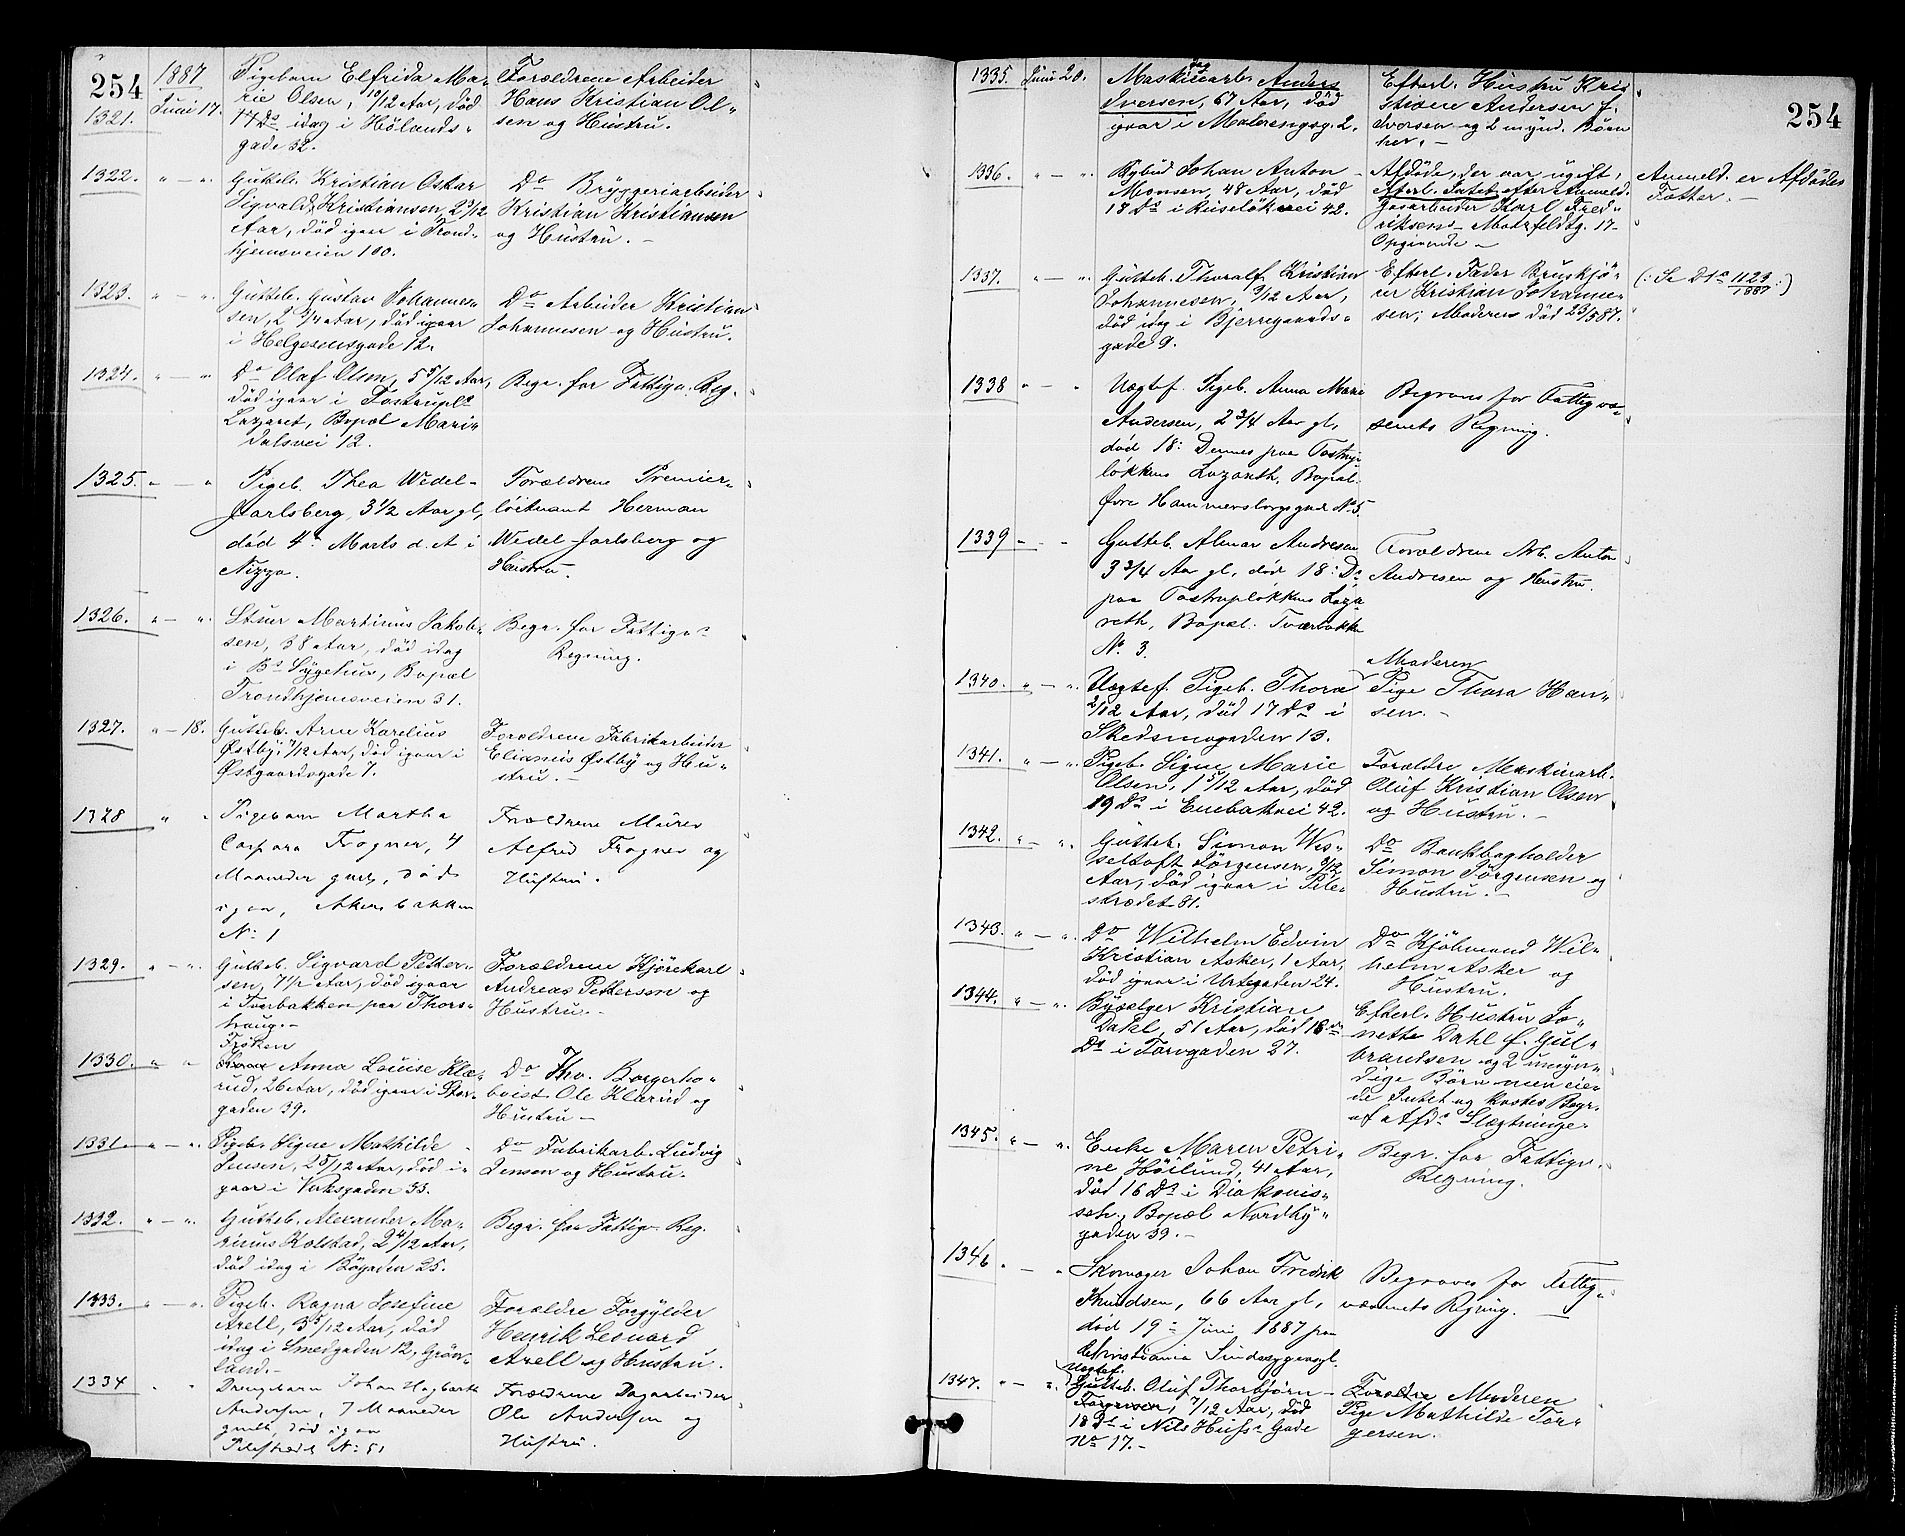 254
1887
1321. Juni 17.
Pigebarn Elfrida Ma-
rie Olsen, 10/12 Aar, död
17 Ds idag i Hölands-
gade 32.
Forældrene Arbeider
Hans Kristian Ol-
sen og Hustru.
1322. " — "
Gutteb. Kristian Oskar
Sigvald Kristiansen, 2 3/12
Aar, död igaar i Trond-
hjemsveien 100.
Do Bryggeriarbeider
Kristian Kristiansen
og Hustru. —
1323. " — "
Gutteb. Gustav Johannes-
sen, 2 3/4 Aar, död igaar
i Helgesensgade 12.
Do Arbeider Kristian
Johannesen og Hustru.
1324. " — "
Do Olaf Olsen, 5 9/12 Aar,
död igaar i Tostrupl.
Lazaret, Bopæl Mari-
dalsvei 12.
Begr. for Fattigv. Reg.
1325. " — "
Pigeb. Thea Wedel-
Jarlsberg, 3 1/2 Aar gl,
död 4. Marts d. A i
Nizza.
Forældrene Premier-
löitnant Herman
Wedel-Jarlsberg og
Hustru.
1326. " — "
Martinus Jakob-
sen, 38 Aar, död idag
i Bs Sygehus, Bopæl
Trondhjemsveien 31.
Begr. for Fattigv.
Regning.
1327. " — 18.
Gutteb. Arne Karelius
Østby, 7/12 Aar, död igaar i
Østgaardsgade 7.
Forældrene Fabrikarbeider
Elianus Østby og Hu-
stru. —
1328 " "
Pigebarn Martha
Caspara Frogner, 4
Maaneder gml, död
igaar, Akersbakken
No 1
Forældrene Murer
Alfred Frogner og
Hustru.
1329. " — "
Gutteb. Sigvard Petter-
sen, 7 1/2 Aar, död igaar
i Tverbakken paa Thors-
haug. —
Forældrene Kjörekarl
Andreas Pettersen og
Hustru. —
1330. " "
Fröken
Anna Louise Klæ-
rud, 26 Aar, död igaar i Stor-
gaden 39.
Do Fhv. Borgerho-
boist Ole Klærud og
Hustru —
1331. " — "
Pigeb. Signe Mathilde
Jensen, 2 5/12 Aar, död i-
gaar i Vaksgaden 33.
Do Fabrikarb. Ludvig
Jensen og Hustru.
1332. " — "
Gutteb. Alexander Ma-
rinius Kolstad, 2 4/12 Aar,
död idag i Bögaden 25.
Begr. for Fattigv. Reg.
1333. " — "
Pigeb. Ragna Josefine
Arell, 3 5/12 Aar, död
idag i Smedgaden 12, Grön-
land. —
Forældre Forgylder
Henrik Leonard
Arell og Hustru.
1334 " "
Drengebarn Johan Hagbarth
Andersen, 7 Maaneder
gml, död igaar
Pilestrædet No 51
Forældrene Dagarbeider
Ole Andersen og
Hustru.
254
1335. Juni 20.
Maskinarb. Anders
Iversen, 67 Aar, död
igaar i Malerengsg. 2.
Efterl. Hustru Kris-
tiane Andersen f.
Iversen og 2 mynd. Börn
her. —
1336. " — "
Bybud Johan Anton
Monsen, 48 Aar, död
18 Ds i Ruselökvei 42.
Afdöde, der var ugift,
Efterl. Intet efter Anmeld.
Gasarbeider Karl Fred-
riksens Motzfeldtg. 17
Opgivende —
Anmeld. er Afdödes
Fætter. —
1337. " — "
Gutteb. Thoralf Kristian
Johannesen, 9/12 Aar,
död idag i Bjerregaards-
gade 9.
Efterl. Fader Bruskjö-
rer Kristian Johanne-
sen; Moderen död 23/5 87.
(: Se Do 1123/1887 :)
1338 " — "
Uægtef. Pigeb. Anna Marie
Andersen, 2 3/4 Aar gl,
död 18: Dennes paa Tostrup-
løkkens Lazareth, Bopæl
Øvre Hammersborggade No 5.
Begraves for Fattigvæ-
senets Regning.
1339 " — "
Gutteb. Almar Andresen
3 3/4 Aar gl, død 18: Ds
paa Tostrupløkkens Laza-
reth, Bopæl: Tværbakken
No 3.
Forældrene Arb. Anton
Andresen og Hustru.
1340. " — "
Uægtef. Pigeb. Thora
2/12 Aar, död 17 Ds i
Skedsmogaden 13.
Moderen
Pige Thora Han-
sen. —
1341. " — "
Pigeb. Signe Marie
Olsen, 1 5/12 Aar, död
19 Ds i Enebakvei 42.
Forældre Maskinarb.
Oluf Kristian Olsen
og Hustru. —
1342. " — "
Gutteb. Simon Wes-
seltoft Jörgensen, 9/12
Aar, död igaar i Pile-
strædet 81.
Do Bankbogholder
Simon Jörgensen og
Hustru. —
1343. " — "
Do Wilhelm Edvin
Kristian Asker, 1 Aar,
död igaar i Urtegaden 24.
Do Kjöbmand Wil-
helm Asker og
Hustru.
1344. " — "
Byselger Kristian
Dahl, 51 Aar, död 18de
Ds i Torvgaden 27.
Efterl. Hustru Jo-
nette Dahl f. Gul-
brandsen og 2 umyn-
dige Börn men eie-
de Intet og kostes Begr.
af Afds Slægtninge.
1345. " — "
Enke Maren Petri-
ne Höilund, 41 Aar,
död 16 Ds i Diakonis-
seh. Bopæl Nordby-
gaden 39. —
Begr. for Fattigv.
Regning.
1346 " — "
Skomager Johan Fredrik
Knudsen, 66 Aar gl,
død 19: Juni 1887 paa
Christiania Sindssygeasyl.
Begraves for Fattig-
væsenets Regning.
1347. " — "
Uægtef.
Gutteb. Oluf Thorbjörn
Torgersen, 7/12 Aar, död
18 Ds i Nils Huss Gade
No 17. —
Forældre Moderen
Pige Mathilde Tor-
gersen.